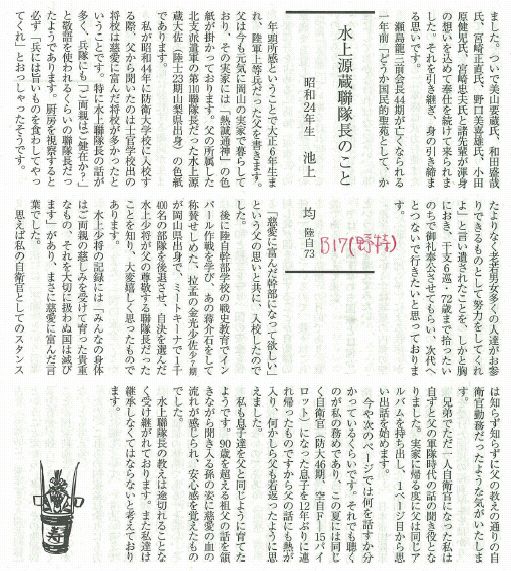 ました。ついで美山要蔵氏、和田盛哉
氏、宮崎正直氏、野口美喜雄氏、小田
原健児氏、宮崎忠夫氏と諸先輩が渾身
の想いを込めて奉仕を続けて来られま
した。それを引き継ぎ、身の引き締ま
る思いです。
瀬島龍三前会長44期が亡くなられる
一年前「どうか国民的聖苑として、か
水上源蔵聯隊長のこと
昭和24年生 池上 均 陸自73
B17(野特)
年頭所感ということで大正6年生ま
れ、陸軍上等兵だった父を書きます。
父は今も元気に岡山の実家で暮らして
おり、その実家には「熱誠通神」の色
紙が掛かっております。父の所属した
北支派遣軍の第110聯隊長だった水上源
蔵大佐(陸士23期山梨県出身)の色紙
であります。
私が昭和44年に防衛大学校に入校す
る際、父から聞いたのは士官学校出の
将校は慈愛に富んだ将校が多かったと
いうことです。特に水上聯隊長の話が
多く、兵隊にも「ご両親はご健在か?」
と敬語を使われるくらいの聯隊長だっ
たようであります。厨房を視察すると
必ず「兵には旨いものを食わしてやっ
てくれ」とおっしゃったそうです。
たよりなく老若男女多くの人達がお参
りできるものとして努力をしてくれ
よ」と言い遺されたことを、しかと胸
におき、干支6巡・72歳まで拾ったい
のちで御礼奉公させてもらい、次代へ
とつないで行きたいと思っておりま
す。
「慈愛に富んだ幹部になって欲しい」
という父の思いと共に、入校したので
した。
後に陸自幹部学校の戦史教育でイン
パール作戦を学び、あの蒋介石をして
称賛せしめた、拉孟の金光少佐少7期
が岡山県出身で、ミートキーナで1千
400名の部隊を後退させ、自決を選んだ
水上少将が父の尊敬する聯隊長だった
ことを知り、大変嬉しく思ったもので
あります。
水上少将の記録には「みんなの身体
はご両親の慈しみを受けて育った貴重
なもの、それを大切に扱わぬ国は滅び
ます」があり、まさに慈愛に富んだ言
葉でした。
思えば私の自衛官としてのスタンス
は知らず知らずに父の教えの通りの自
衛官勤務だったような気がいたしま
す。
兄弟でただ一人自衛官になった私は
自ずと父の軍隊時代の話の聞き役とな
りました。実家に帰る度に父は同じア
ルバムを持ち出し、1ページ目から思
い出話を始めます。
今や次のページでは何を話すか分
かっているくらいです。それでも聴く
のが私の務めであり、この夏には同じ
く自衛官(防大46期、空自F-15パイ
ロット)になった息子を12年ぶりに連
れ帰ったものですから父の話にも熱が
入り、何かしら父も若返ったように思
えました。
私も息子達を父と同じように育てた
ようです。90歳を超える祖父の話を頷
きながら聞き入る孫の姿に慈愛の血の
流れが感じられ、安心感を覚えたもの
でした。
水上聯隊長の教えは途切れることな
く受け継がれております。また私達は
継承しなくてはならないと考えており
ます。
寿